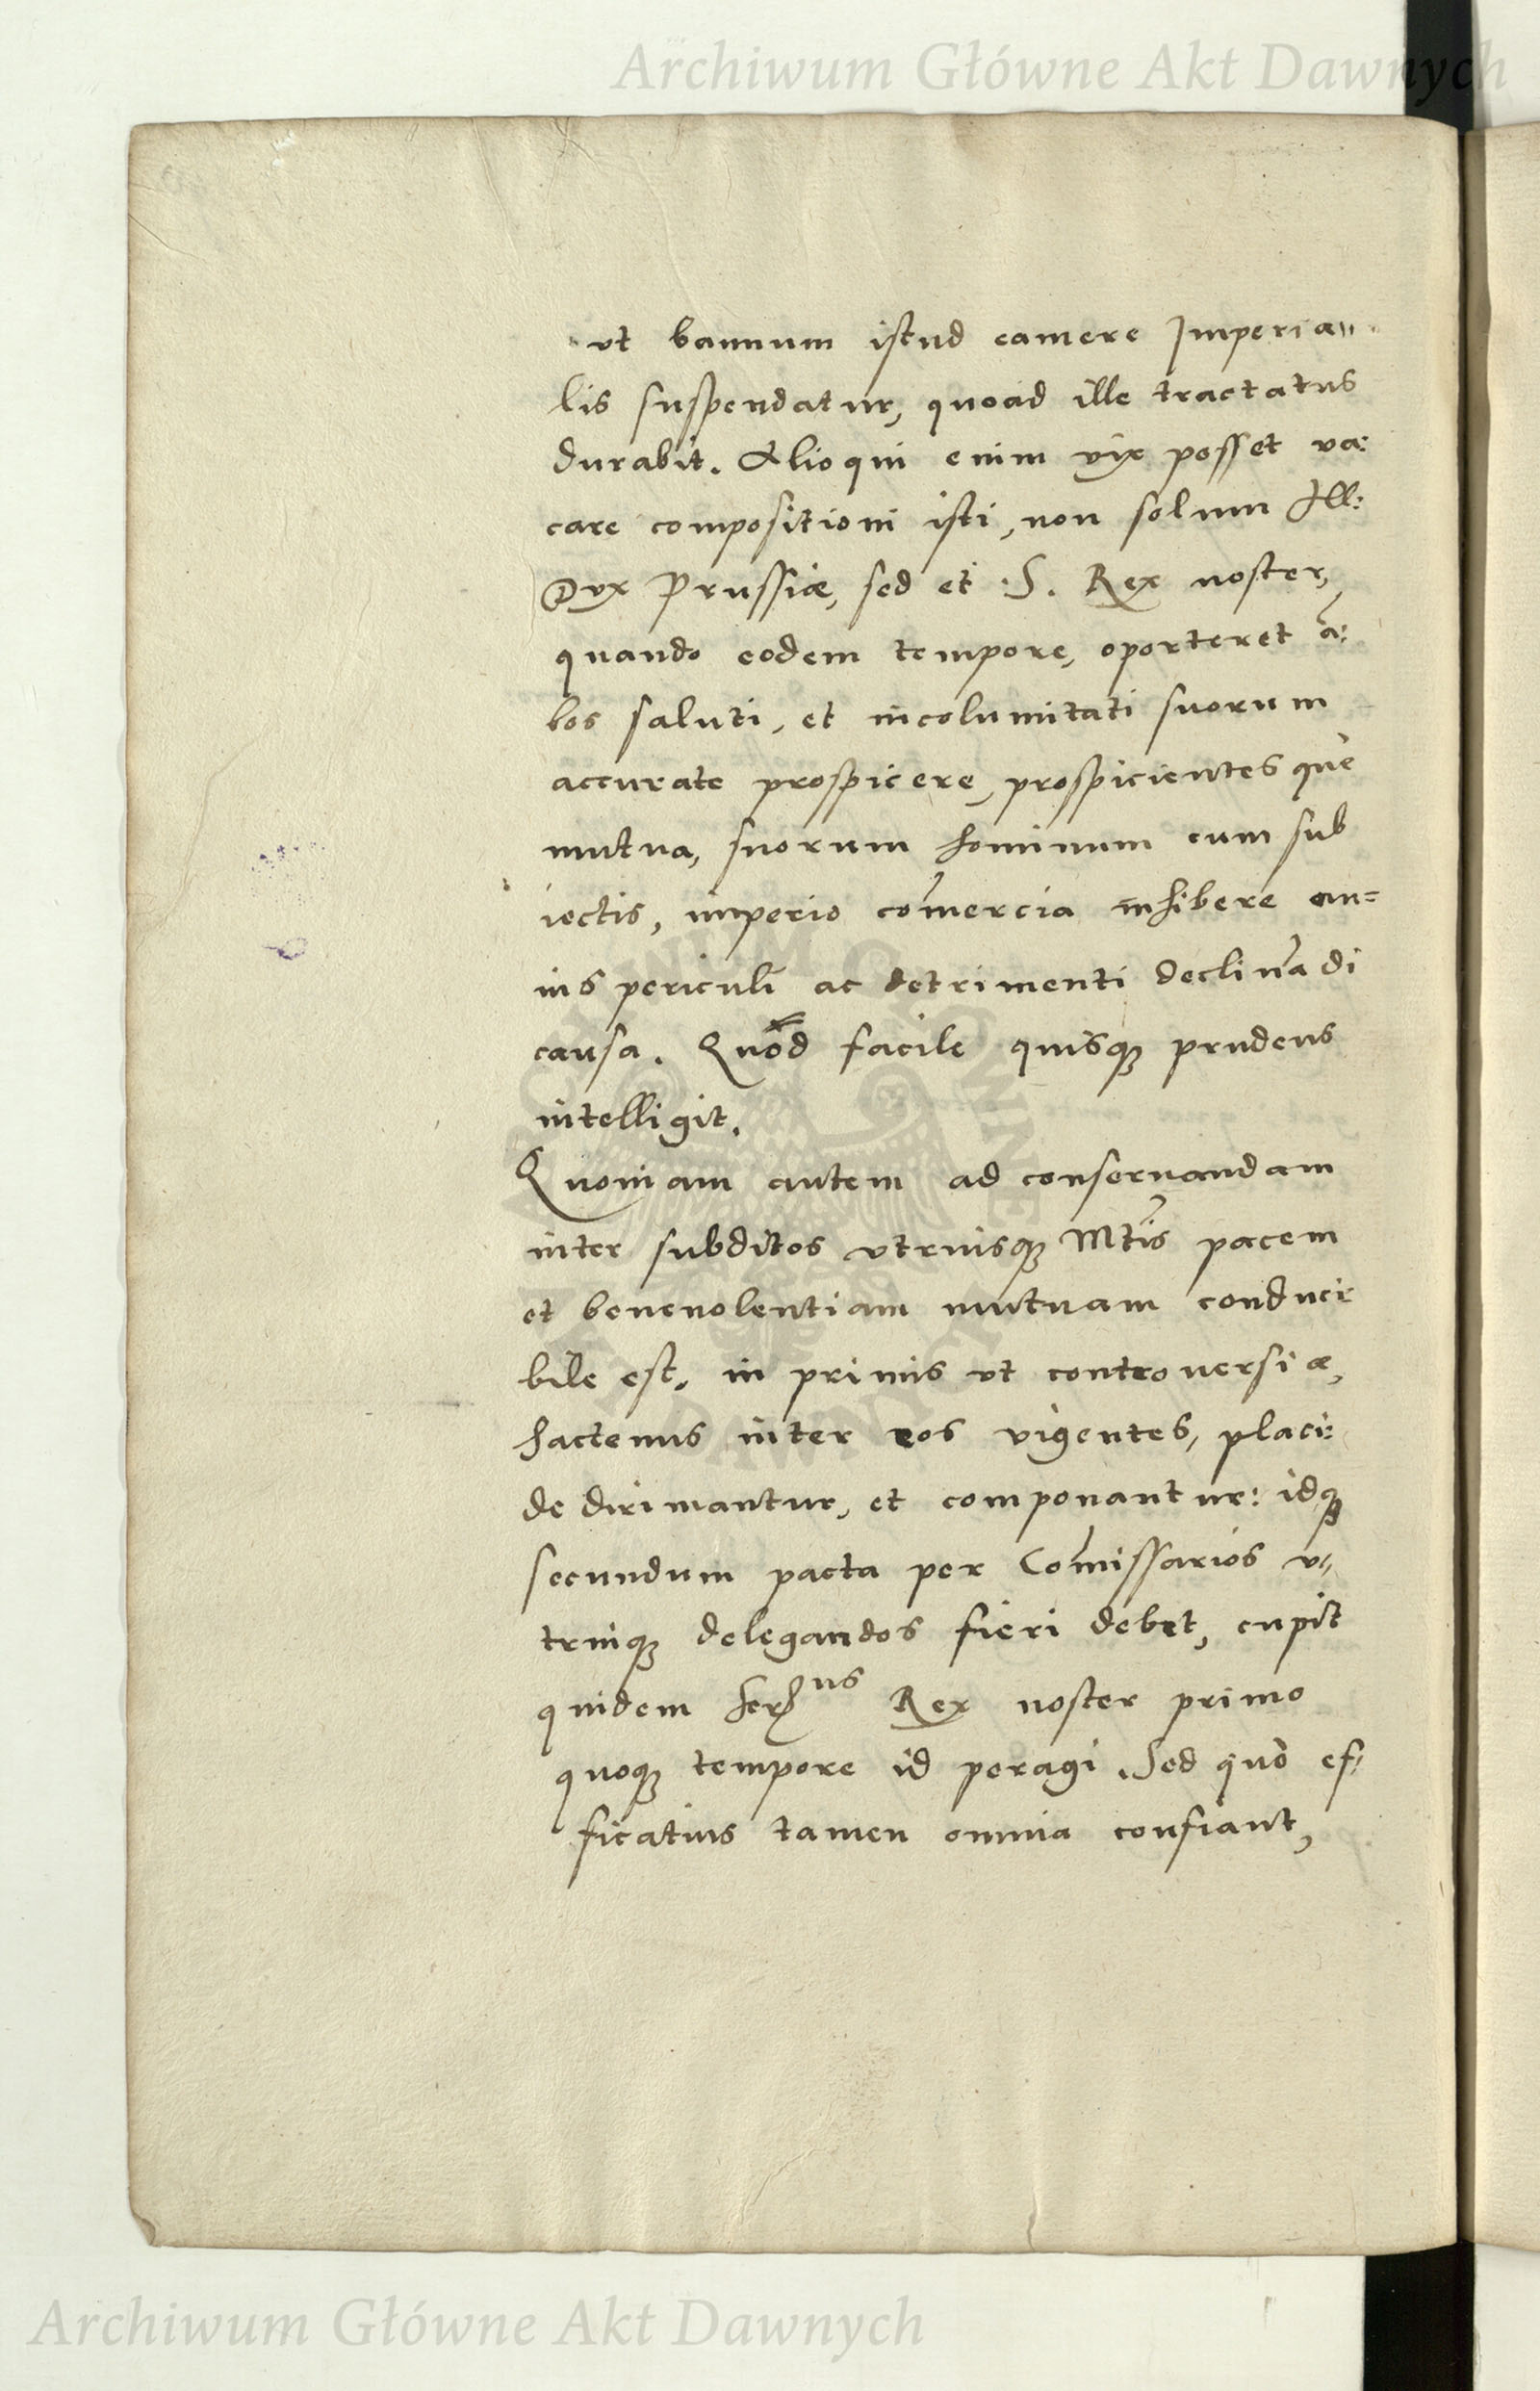 Archiwum Główne Akt Dawnych
vt bannum istud camere Imperia„
lis suspendatur, quoad ille tractatus
durabit. Alioqui enim vix posset va:
care compositioni isti, non solum Ill:
Dux Prussiæ, sed et .S. Rex noster,
quando eodem tempore, oporteret ā:
bos saluti, et incolumitati suorum
accurate prospicere, prospicientesque
mutua, suorum hominum cum sub
iectis, imperio com̄ercia inhibere om=
nis periculi ac detrimenti declinādi
causa. Quod facile quisqꝫ prudens
intelligit.
Quoniam autem ad conseruandam
inter subditos vtriusqꝫ Mtīs pacem
et beneuolentiam mutuam conduci:
bile est, in primis vt controuersiæ,
hactenus inter eos vigentes, placi:
de dirimantur, et componantur: idqꝫ
secundum pacta per Com̄issarios v„
trinqꝫ delegandos fieri debet, cupit
quidem Serus Rex noster primo
quoqꝫ tempore id peragi. Sed quò ef„
ficatius tamen omnia confiant,
Archiwum Główne Akt Dawnych